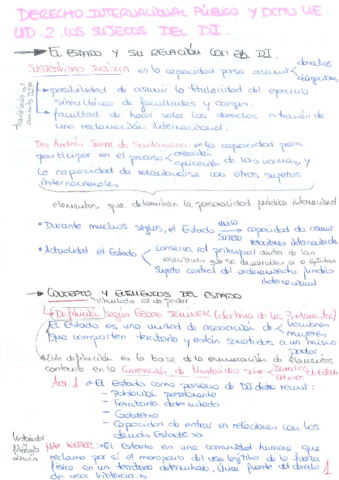 DERECHO INTERNACIONAL PÚBLICO Y DCTO UE
UD. 2. LOS SUJETOS DEL DI.
EL ESTADO Y SU RELACIÓN CON EL DI.
SUBJETIVIDAD JURÍDICA es la capacidad para asumir derechos
obligaciones
posibilidad de asumir la titularidad del ejercicio
simultáneo de facultades y cargas.
facultad de hacer valer los derechos a través de
una reclamación internacional.
Dra Andrés Sáenz de Santamaría: es la capacidad para
participar en el proceso creación
aplicación de las normas, y
la capacidad de relacionarse con otros sujetos
internacionales
elementos que determinan la personalidad jurídica internacional
• Durante muchos siglos, el Estado único
sujeto capacidad de asumir
relaciones internacionales
• Actualidad el Estado conserva rol principal dentro de las
relaciones que se desarrollan
sujeto central del ordenamiento jurídico
internacional
CONCEPTO Y ELEMENTOS DEL ESTADO
vinculado al de poder.
Definición según GEORG JELLINEK (doctrina de los 3 elementos)
El Estado es una unidad de asociación de hombres
mujeres
que comparten territorio y están sometidos a un mismo
poder.
Esta definición es la base de la enumeración de elementos
contenida en la Convención de Montevideo sobre Derechos
Deberes
Art 1 "El Estado como persona de DI debe reunir:
- Población permanente
- Territorio determinado
- Gobierno
- Capacidad de entrar en relaciones con los
demás Estados"
historiador y filósofo alemán
MAX WEBER: "El Estado es una comunidad humana que
reclama por sí el monopolio del uso legítimo de la fuerza
física en un territorio determinado. Única fuente del derecho
de usar violencia."
1